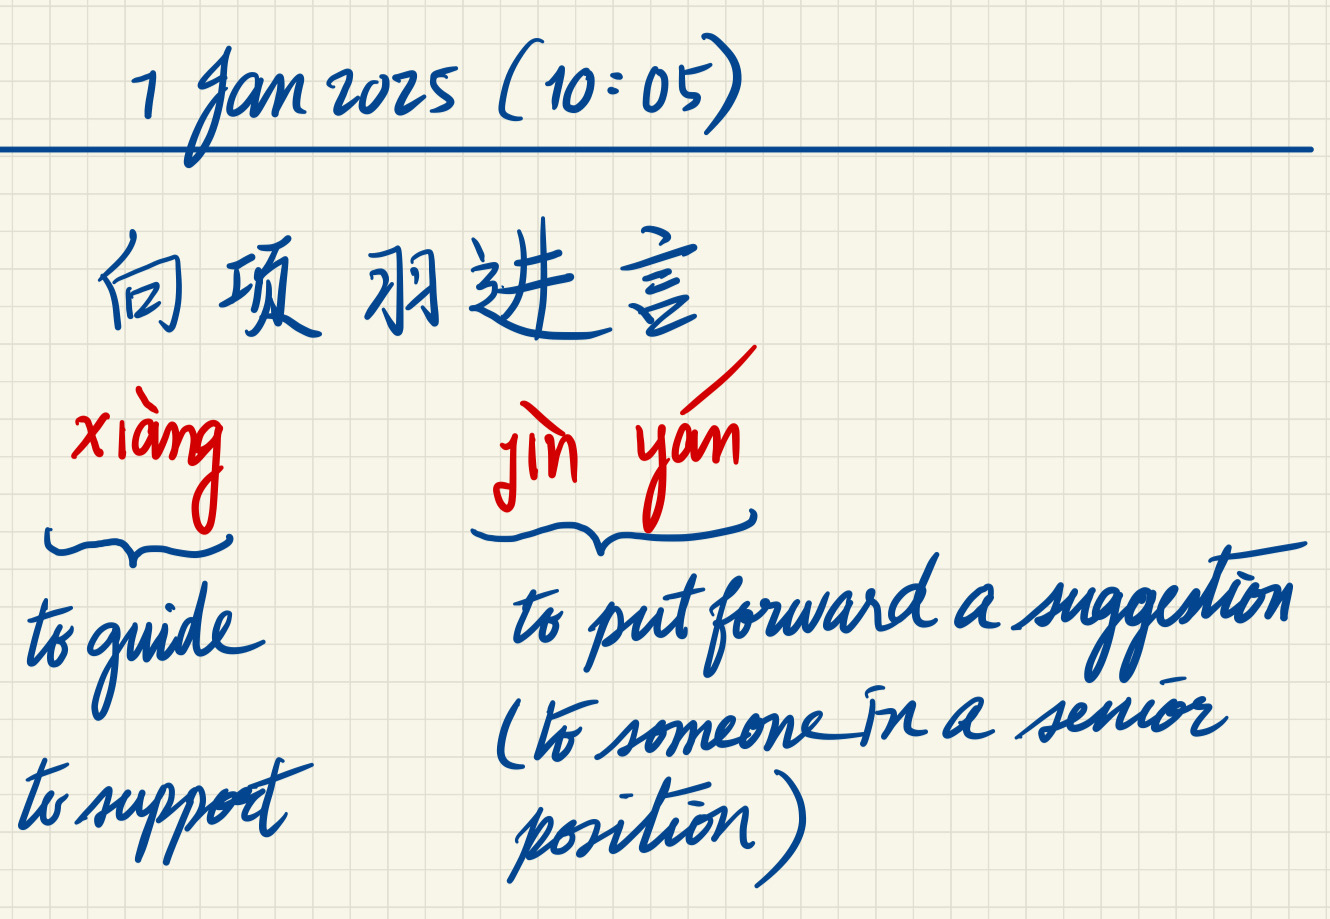 1 Jan 2025 (10:05)
向项羽进言
xiàng jìn yán
to guide to put forward a suggestion
(to someone in a senior
to support position)